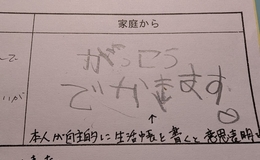 家庭から
がっこう
でかきます
↑
本人が自主的に生活帳を書くと意思表明